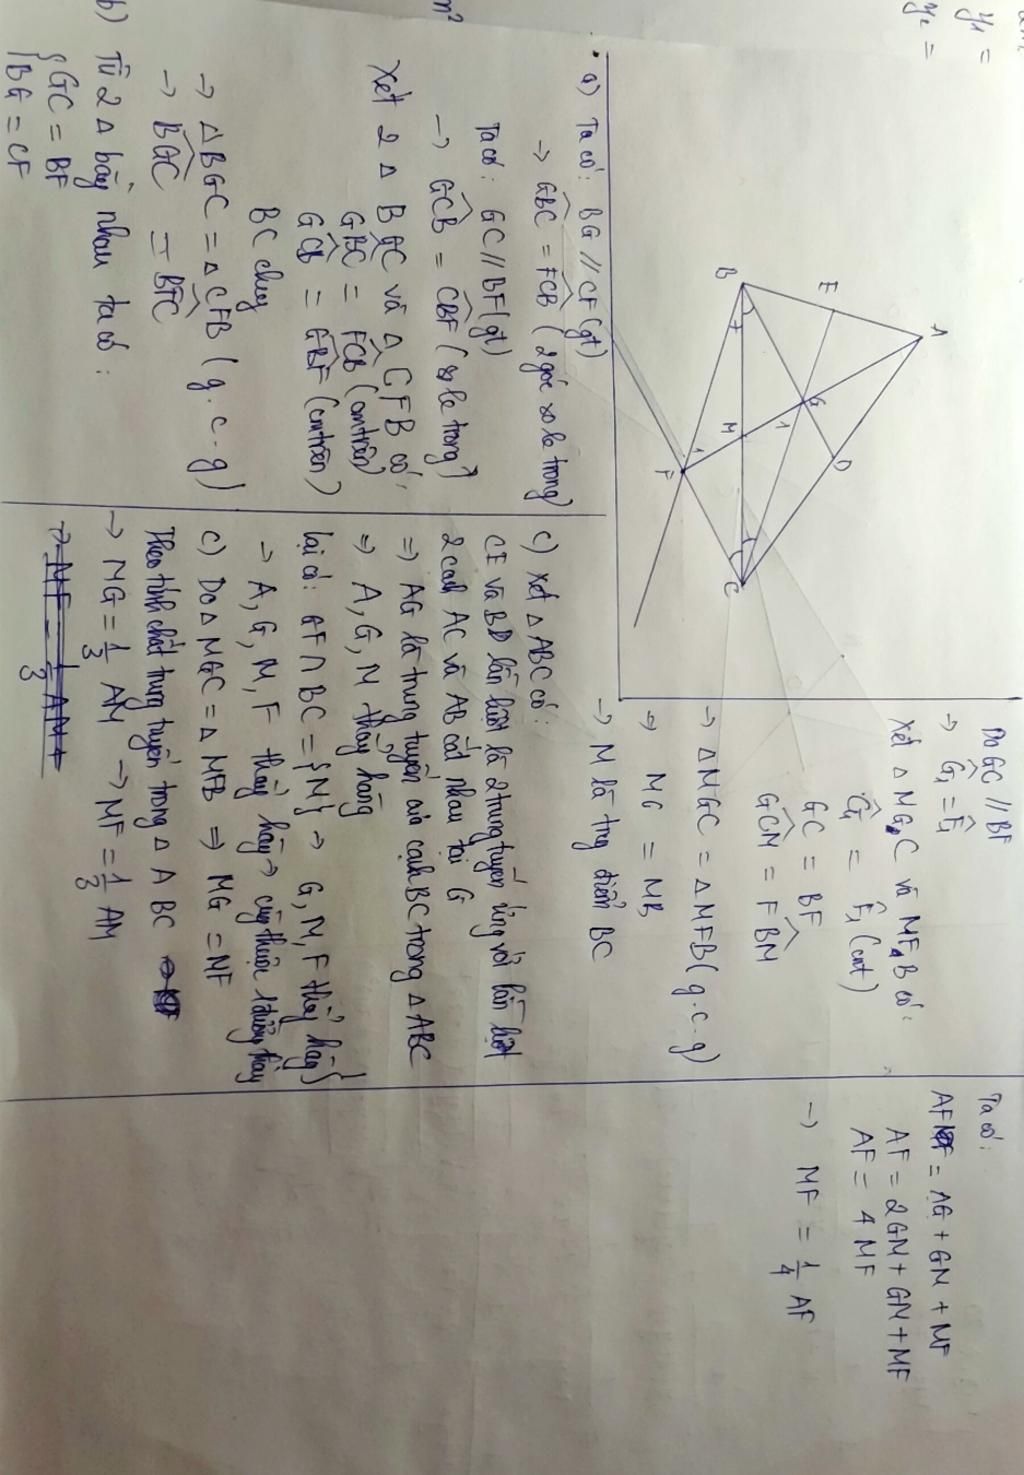 y₁ =
y₂ =
m²
A
E
D
G
1
B
M
C
1
F
a) Ta có: BG // CF (gt)
→ GBC = FCB (2 góc so le trong)
Ta có: GC // BF (gt)
→ GCB = CBF (so le trong)
Xét 2 Δ BGC và Δ CFB có:
GBC = FCB (cmtrên)
BC chung
GCB = CBF (cmtrên)
→ Δ BGC = Δ CFB (g.c.g)
→ BGC = BFC
b) Từ 2 Δ bằng nhau ta có:
{ GC = BF
BG = CF
Do GC // BF
→ G₁ = F₁
Xét Δ MGC và MFB có:
G₁ = F₁ (cmt)
GC = BF
GCM = FBM
→ Δ MGC = Δ MFB (g.c.g)
→ MC = MB
→ M là trg điểm BC
c) Xét Δ ABC có:
CE và BD lần lượt là 2 trung tuyến ứng với lần lượt
2 cạnh AC và AB cắt nhau tại G
⇒ AG là trung tuyến của cạnh BC trong Δ ABC
⇒ A, G, M thẳng hàng
Lại có: GF ∩ BC = {M} → G, M, F thẳng hàng }
→ A, G, M, F thẳng hàng → cùng thuộc 1 đường thẳng
c) Do Δ MGC = Δ MFB ⇒ MG = MF
Theo tính chất trung tuyến trong Δ ABC
→ MG = 1/3 AM → MF = 1/3 AM
→ MF = 1/3 AM
Ta có:
AF = AG + GM + MF
AF = 2GM + GM + MF
AF = 4 MF
→ MF = 1/4 AF